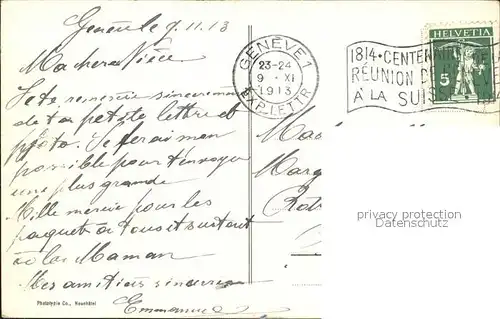 Genève le 9.11.13
Ma chère Nièce
Je te remercie sincèrement
de ta petite lettre et
photo. Je ferai mon
possible pour t'envoyer
une plus grande
Mille mercis pour les
paquets à tous et surtout
à la Maman
Mes amitiés sincères
Emmanuel
Phototypie Co., Neuchâtel
GENÈVE 1
23-24
9 - XI
1913
EXP. LETTR
1814 • CENTENAIRE
RÉUNION DE
À LA SUISSE
HELVETIA
5
Marg
privacy protection
Datenschutz